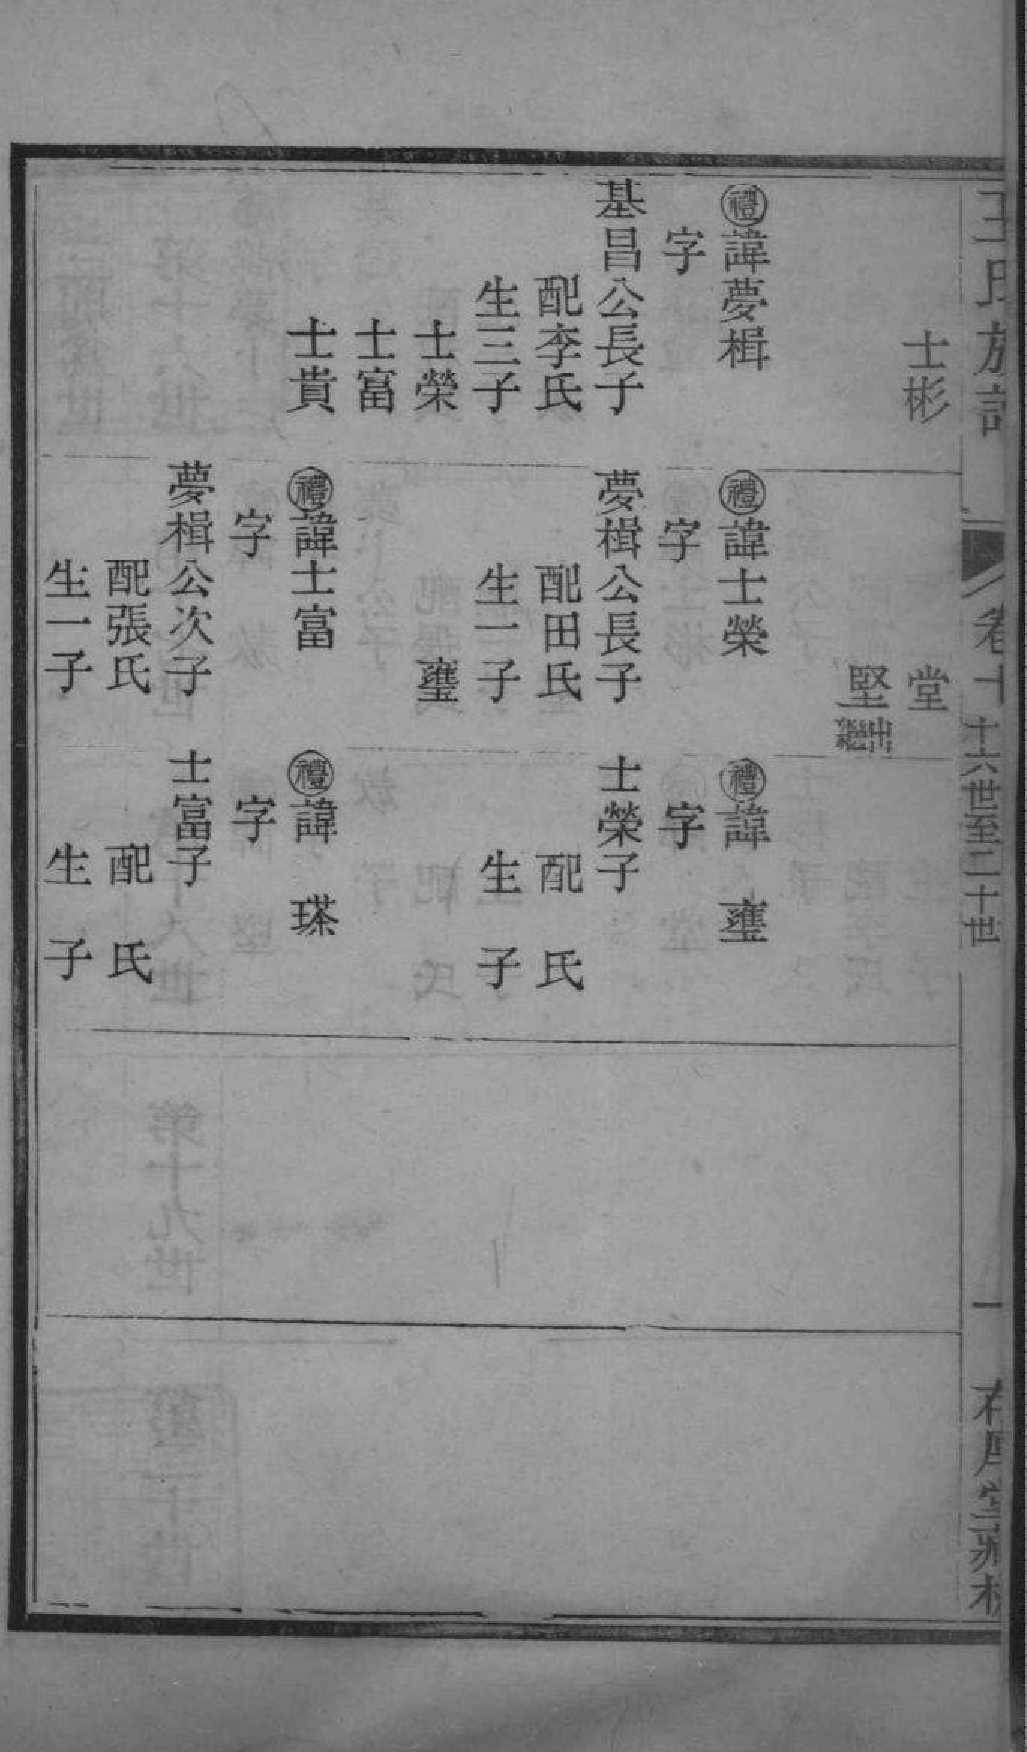 王氏族譜
卷十
十六世至二十世
一
存厚堂藏板
士彬
禮諱夢楫
字
基昌公長子
配李氏
生三子
士榮
士富
士貴
堂
堅出繼
禮諱士榮
字
夢楫公長子
配田氏
生一子
壅
禮諱士富
字
夢楫公次子
配張氏
生一子
禮諱 壅
字
士榮子
配 氏
生 子
禮諱
字
士富子
配 氏
生 子